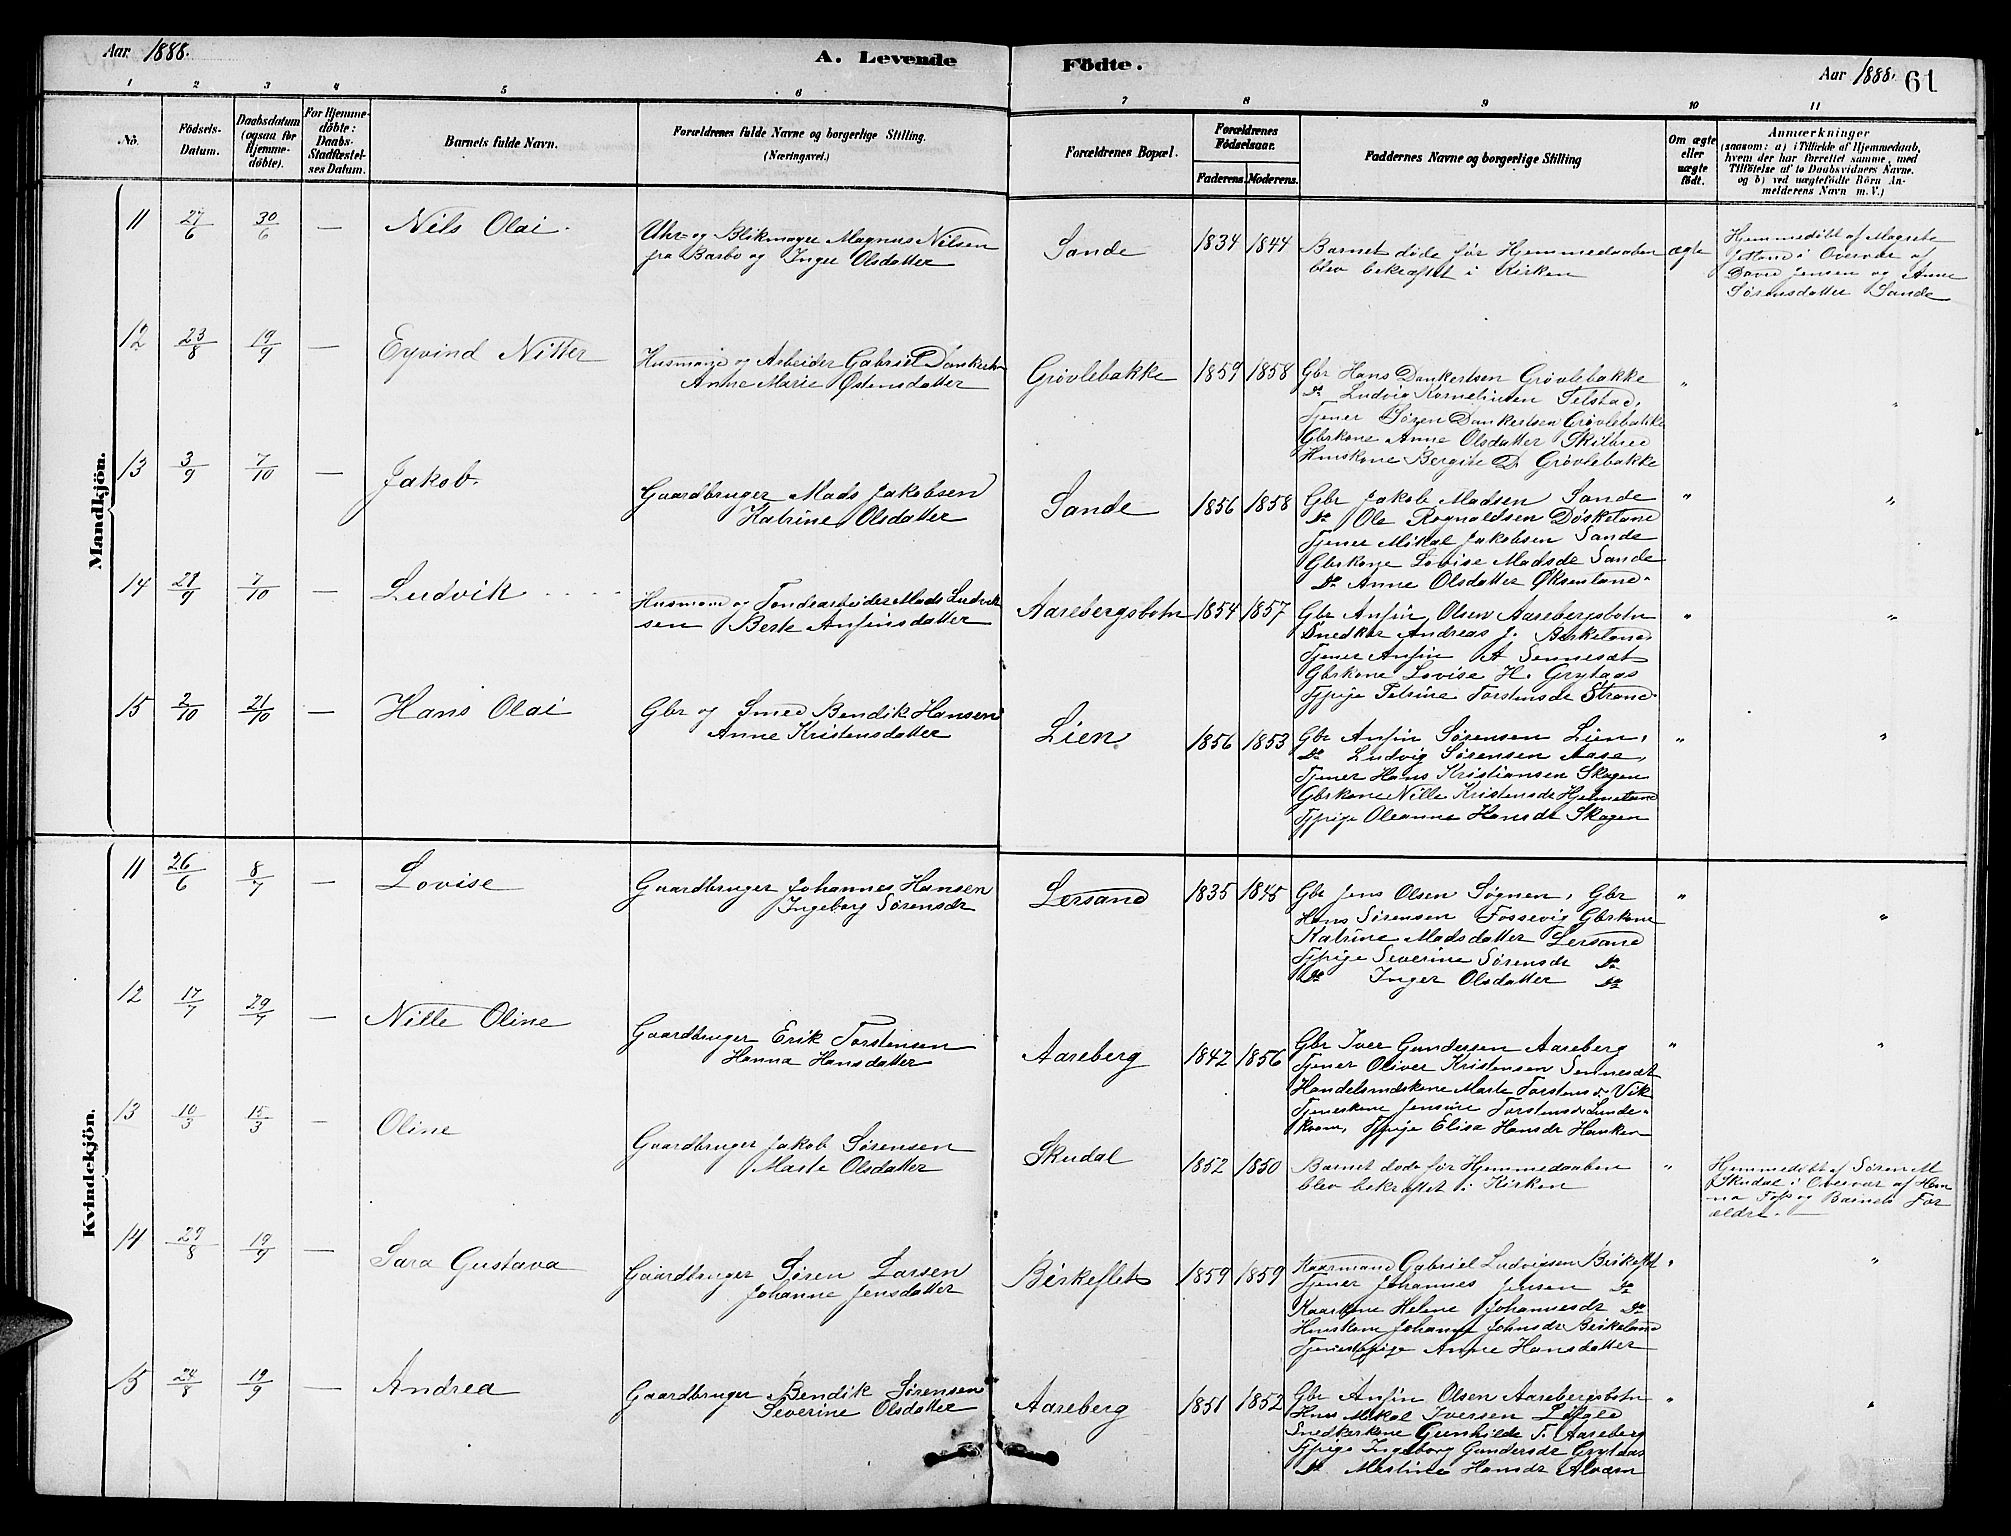 Aar 1888. A. Levende Födte. Aar 1888. 61
1 2 3 4 5 6 7 8 9 10 11
No. Födsels-Datum. Daabsdatum (ogsaa for Hjemme-döbte). For Hjemme-döbte: Daabs-Stadfæstel-ses Datum. Barnets fulde Navn. Forældrenes fulde Navne og borgerlige Stilling. (Næringsvei.) Forældrenes Bopæl. Forældrenes Födselsaar. Faderens. Moderens. Faddernes Navne og borgerlige Stilling Om ægte eller uægte födt. Anmærkninger
(saasom: a) i Tilfælde af Hjemmedaab, hvem der har forrettet samme, med Tilföielse af to Daabsvidners Navne. og b) ved uægtefödte Börn An-melderens Navn m. V.)
Mandkjön.
11 27/6 30/6 — Nils Olai. Uhr- og Blikmager Magnus Nilsen Sande 1834 1844 Barnet døde før Hjemmedaaben ægte Hjemmedöbt af
fra Barbo og Inger Olsdatter blev bekræftet i Kirken i Overvær af
Jensen og Anne
Sørensdatter Sande
12 23/8 19/9 — Eyvind Nitter Husmand og Arbeider Gabriel Grövlebakke 1859 1858 Gbr Hans Dankertsen Grövlebakke "
Anne Marie Østensdatter Do Ludvig Kornelius
Tjener Sören Dankertsen Grövlebakke "
Gbrkone Anne Olsdatter
Huskone D. Grövlebakke
13 3/9 7/10 — Jakob. Gaardbruger Mads Jakobsen Sande 1856 1858 Gbr Jakob Madsen Sande " "
Katrine Olsdatter Do Ole Rognaldsen Døskeland
Tjener Mikal Jakobsen Sande
Gbrkone Lovise Madsdr Sande
Do Anne Olsdatter Øksenland
14 29/9 7/10 — Ludvik Husmand og Mads Ludvik Aarebergsbotn 1854 1857 Gbr Anfin Olsen Aarebergsbotn " "
sen Berte Anfinsdatter Snedker Andreas J. Birkeland
Tjener Anfin A Sennesæt
Gbrkone Lovise H. Grytaas
Tjpige Torstensdr Strand
15 2/10 21/10 — Hans Olai Gbr og Smed Bendik Hansen Lien 1856 1853 Gbr Anfin Sørensen Lien, " "
Anne Kristensdatter Do Ludvig Sørensen Aase,
Tjener Hans Kristiansen Skagen
Gbrkone Nille Kristensdr Hjelmeland
Tjpige Oleanna Hansdr Skagen
Kvindekjön.
11 26/6 8/7 — Lovise Gaardbruger Johannes Hansen Lersand 1835 1845 Gbr Jens Olsen Søgnen, Gbr " "
Ingeborg Sørensdr Hans Sørensen Fossevig Gbrkone
Katrine Madsdatter Lersand
Tjpige Severine Sørensdr Do
Do Inger Olsdatter Do
12 17/7 29/7 — Nille Oline Gaardbruger Erik Torstensen Aareberg 1842 1856 Gbr Iver Gundersen Aareberg " "
Hanna Hansdatter Tjener Oliver Kristensen Sennesæt
Marte Torstensd. Vik
Tjeneskone Jensine Torstensdr
Tjpige Elisa Hansdr
13 10/3 15/3 — Oline Gaardbruger Jakob Sørensen Skudal 1852 1850 Barnet døde før Hjemmedaaben " Hjemmedöbt af Søren M
Marte Olsdatter blev bekræftet i Kirken Skudal i Overvær af Han
na og Barnets For
ældre.
14 29/8 19/9 — Sara Gustava Gaardbruger Søren Larsen Birkeflet 1859 1859 Kaarmand Gabriel Ludvigsen Birkeflet " "
Johanne Jensdatter Tjener Johannes Jensen Do
Kaarkone Helene Johannesdr Do
Huskone Johanne Johnsdr Birkeland
Tjenestepige Anne Hansdatter
15 24/8 19/9 — Andrea Gaardbruger Bendik Sørensen Aareberg 1851 1852 Gbr Anfin Olsen Aarebergsbotn " "
Severine Olsdatter Mikal Iversen
Snedkerkone Gunhilde T. Aareberg
Tjpige Ingeborg Gundersdr Grytaas
Do Martine Hansdr